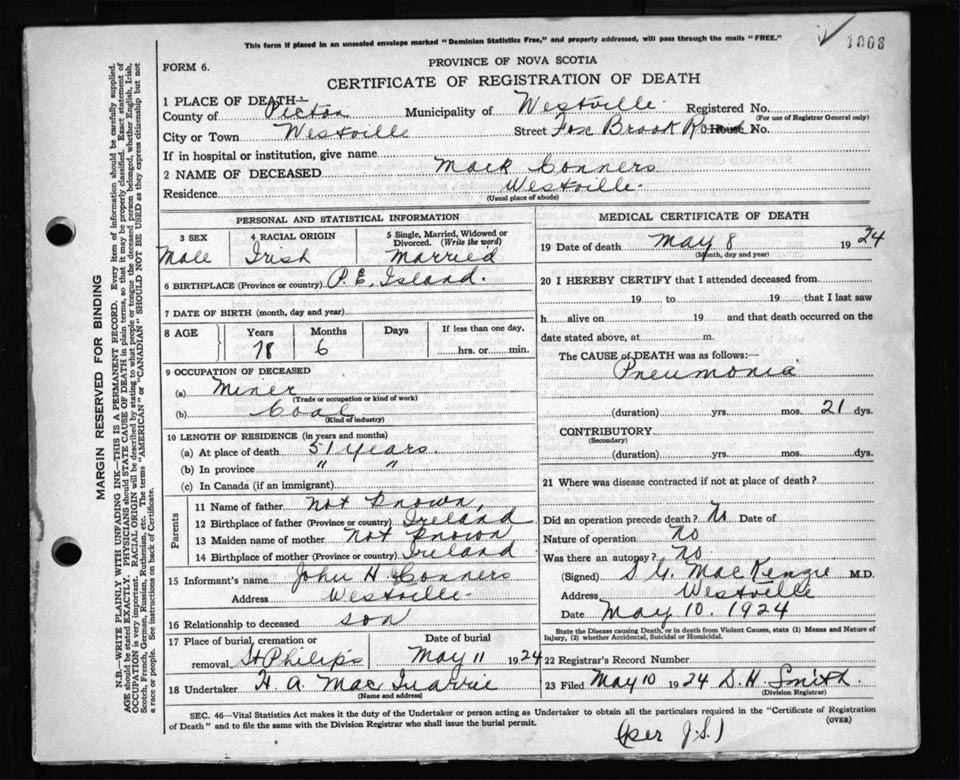 This form if placed in an unsealed envelope marked "Dominion Statistics Free," and properly addressed, will pass through the mails "FREE."
1008
FORM 6.
PROVINCE OF NOVA SCOTIA
CERTIFICATE OF REGISTRATION OF DEATH
1 PLACE OF DEATH—
County of Pictou Municipality of Westville Registered No.
(For use of Registrar General only)
City or Town Westville Street Fox Brook Road House No.
If in hospital or institution, give name
2 NAME OF DECEASED Mack Conners
Residence Westville
(Usual place of abode)
PERSONAL AND STATISTICAL INFORMATION
3 SEX 4 RACIAL ORIGIN 5 Single, Married, Widowed or Divorced. (Write the word)
Male Irish Married
6 BIRTHPLACE (Province or country) P. E. Island.
7 DATE OF BIRTH (month, day and year)
8 AGE Years Months Days If less than one day,
78 6 hrs. or min.
9 OCCUPATION OF DECEASED
(a) Miner
(Trade or occupation or kind of work)
(b) Coal
(Kind of industry)
10 LENGTH OF RESIDENCE (in years and months)
(a) At place of death 51 years.
(b) In province " "
(c) In Canada (if an immigrant)
Parents
11 Name of father Not Known,
12 Birthplace of father (Province or country) Ireland
13 Maiden name of mother Not Known
14 Birthplace of mother (Province or country) Ireland
15 Informant's name John H Conners
Address Westville
16 Relationship to deceased son
17 Place of burial, cremation or removal St Philip's Date of burial May 11 1924
18 Undertaker H. A. Mac Quarrie
(Name and address)
MEDICAL CERTIFICATE OF DEATH
19 Date of death May 8 1924
(Month, day and year)
20 I HEREBY CERTIFY that I attended deceased from
19 to 19 that I last saw
h alive on 19 and that death occurred on the
date stated above, at m.
The CAUSE of DEATH was as follows:—
Pneumonia
(duration) yrs. mos. 21 dys.
CONTRIBUTORY
(Secondary)
(duration) yrs. mos. dys.
21 Where was disease contracted if not at place of death?
Did an operation precede death? No Date of
Nature of operation No
Was there an autopsy? No
(Signed) S. G. MacKenzie M.D.
Address Westville
Date May 10. 1924
State the Disease causing Death, or in death from Violent Causes, state (1) Means and Nature of
Injury, (2) whether Accidental, Suicidal or Homicidal.
22 Registrar's Record Number
23 Filed May 10 1924 D. H. Smith
(Division Registrar)
SEC. 46—Vital Statistics Act makes it the duty of the Undertaker or person acting as Undertaker to obtain all the particulars required in the "Certificate of Registration
of Death" and to file the same with the Division Registrar who shall issue the burial permit. (OVER)
(per J.S.)
MARGIN RESERVED FOR BINDING
N.B.—WRITE PLAINLY WITH UNFADING INK—THIS IS A PERMANENT RECORD. Every item of information should be carefully supplied.
AGE should be stated EXACTLY. PHYSICIANS should STATE CAUSE OF DEATH in plain terms, so that it may be properly classified. Exact statement of
OCCUPATION is very important. RACIAL ORIGIN will be described by stating to what people or tongue the deceased person belonged, whether English, Irish,
Scotch, French, German, Russian, Ruthenian, etc. The terms "AMERICAN" or "CANADIAN" SHOULD NOT BE USED as they express citizenship but not
a race or people. See instructions on back of Certificate.